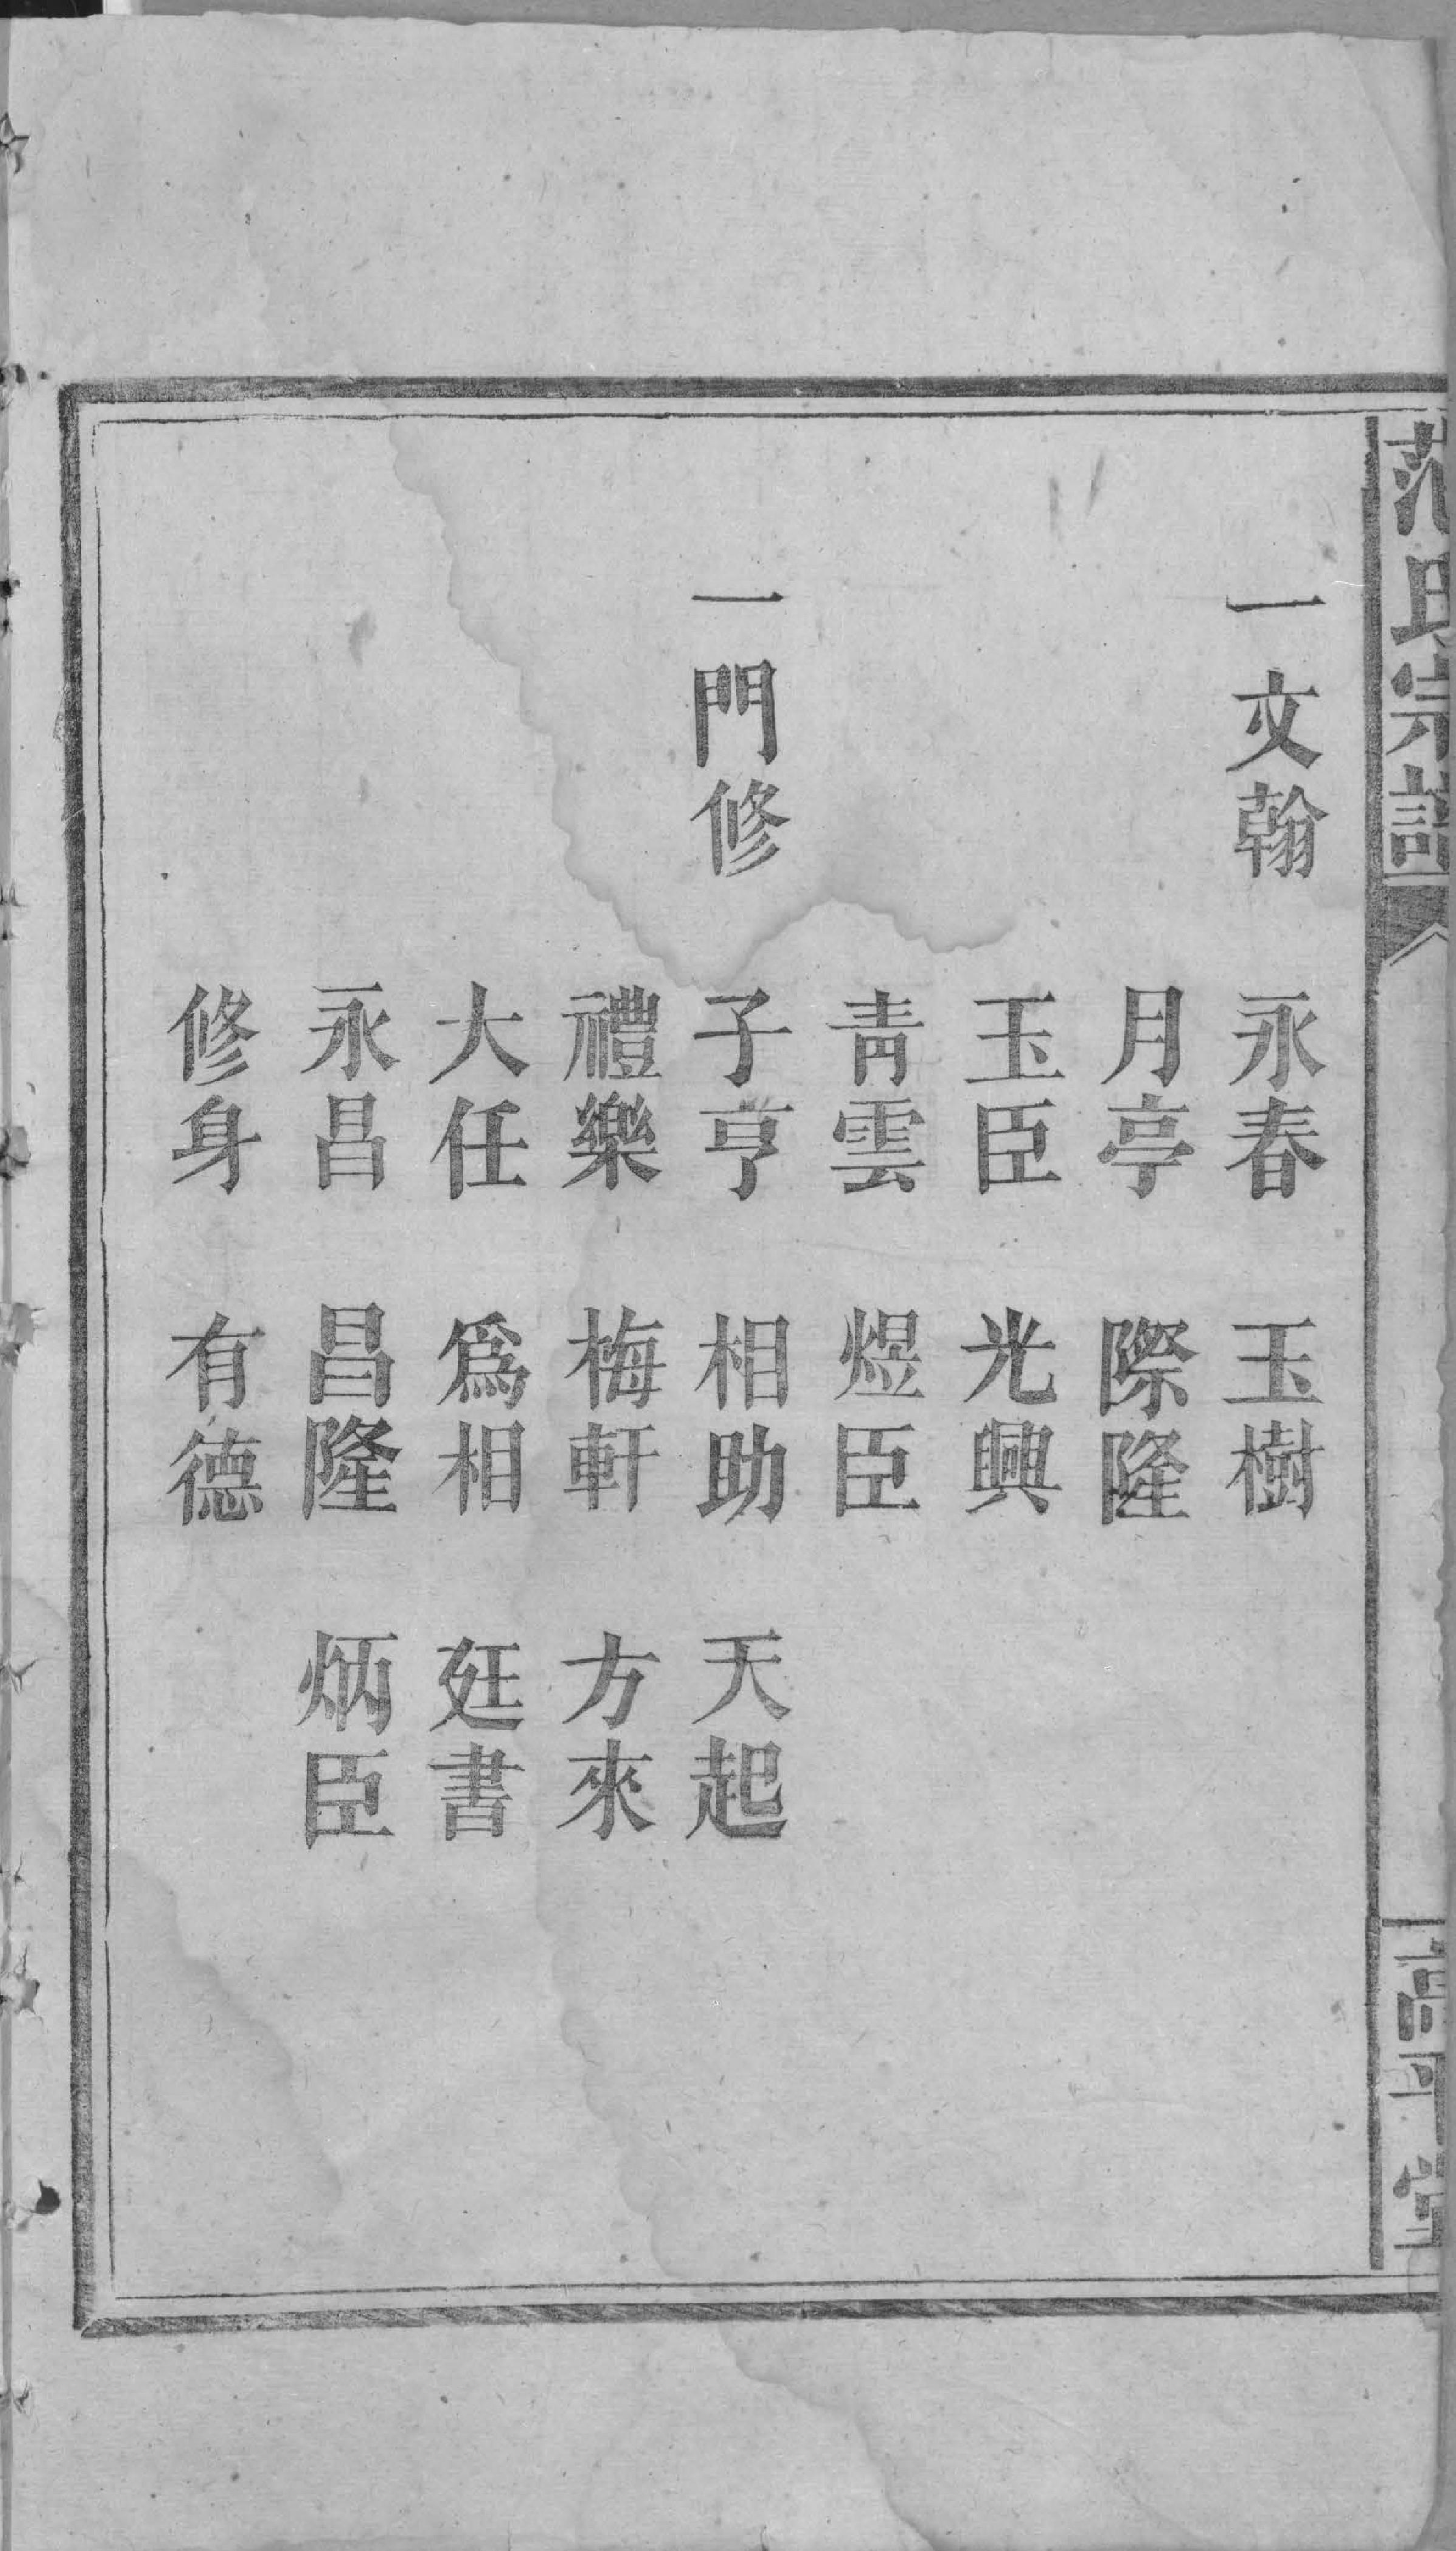 范氏宗譜
高平堂
一文翰 永春 玉樹
月亭 際隆
玉臣 光興
靑雲 煜臣
一門修 子亨 相助 天起
禮樂 梅軒 方來
大任 爲相 廷書
永昌 昌隆 炳臣
修身 有德